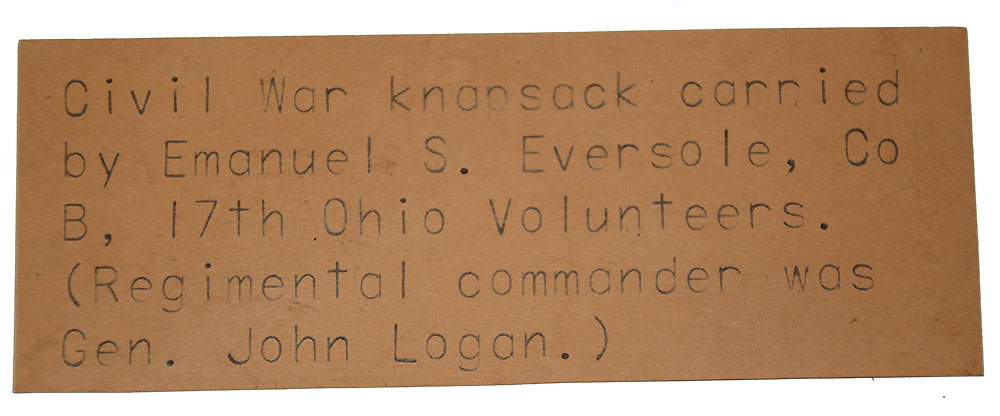 Civil War knapsack carried
by Emanuel S. Eversole, Co
B, 17th Ohio Volunteers.
(Regimental commander was
Gen. John Logan.)